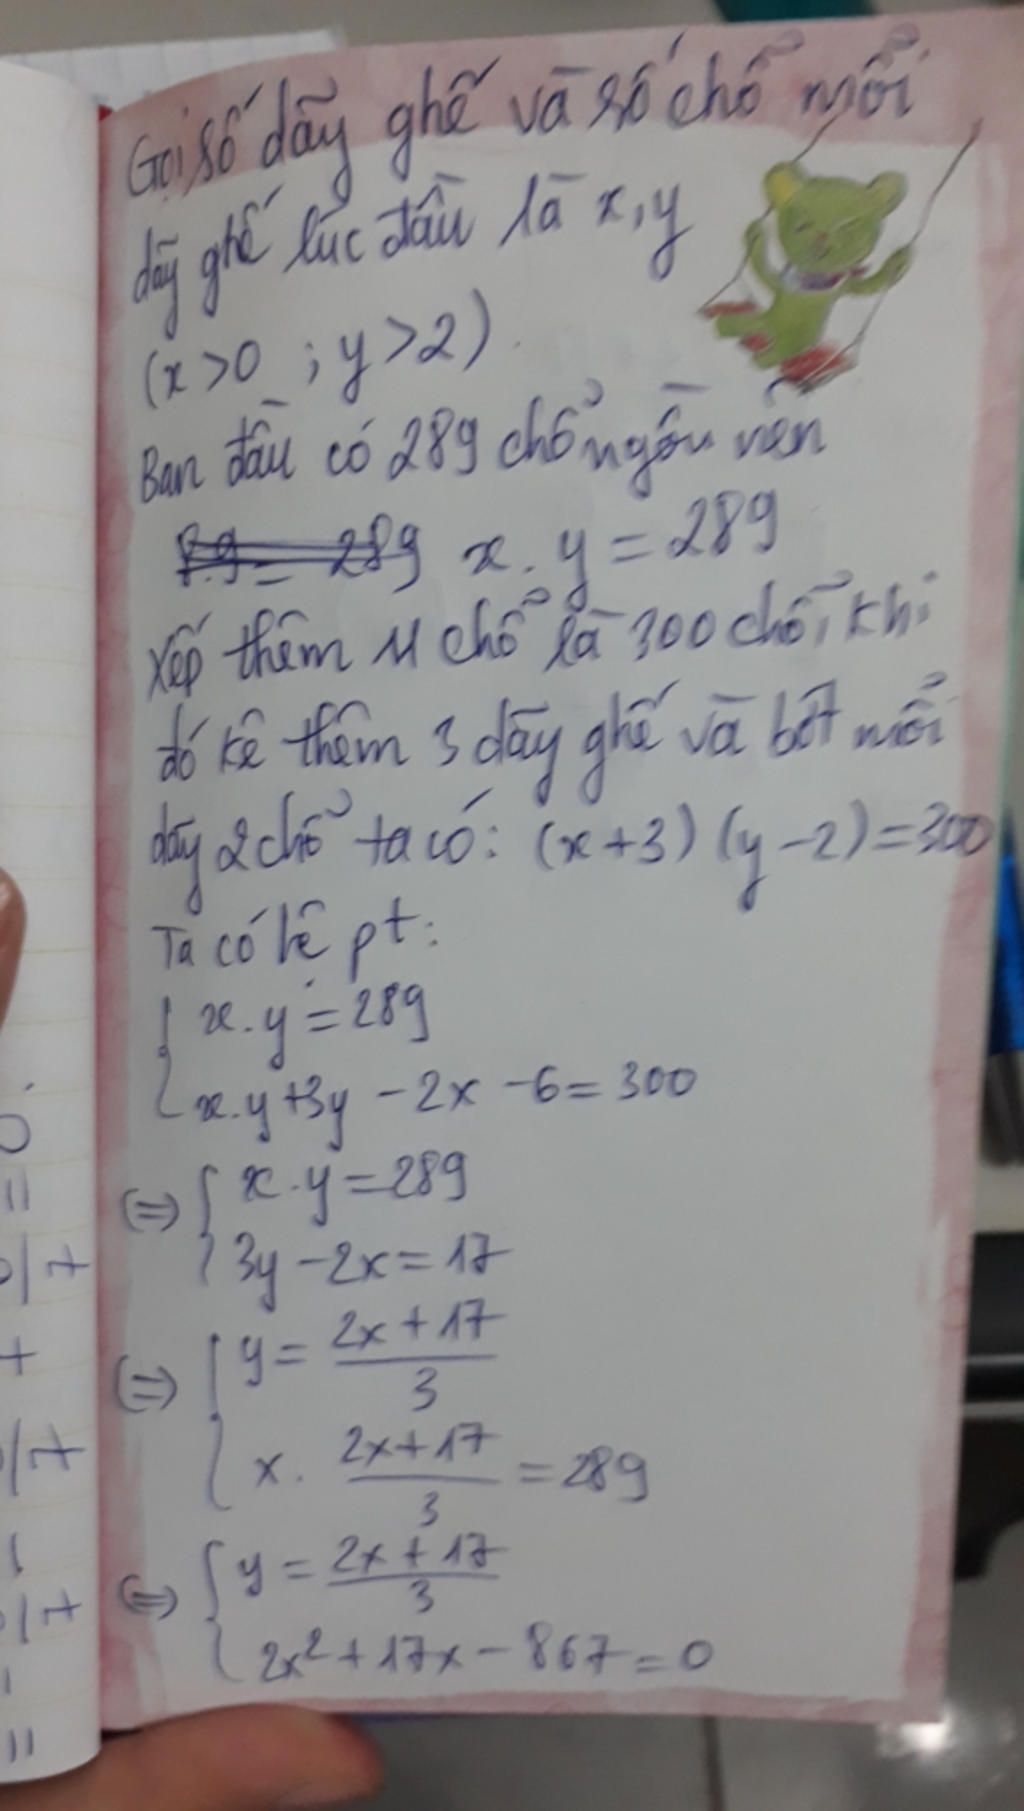 Gọi số dãy ghế và số chỗ mỗi
dãy ghế lúc đầu là x, y
(x > 0 ; y > 2)
Ban đầu có 289 chỗ ngồi nên
x . y = 289
xếp thêm 11 chỗ là 300 chỗ, khi
đó kê thêm 3 dãy ghế và bớt mỗi
dãy 2 chỗ ta có: (x + 3) (y - 2) = 300
Ta có hệ pt:
{ x . y = 289
x . y + 3y - 2x - 6 = 300
(=) { x . y = 289
3y - 2x = 17
(=) { y = (2x + 17)/3
x . (2x + 17)/3 = 289
(=) { y = (2x + 17)/3
2x² + 17x - 867 = 0